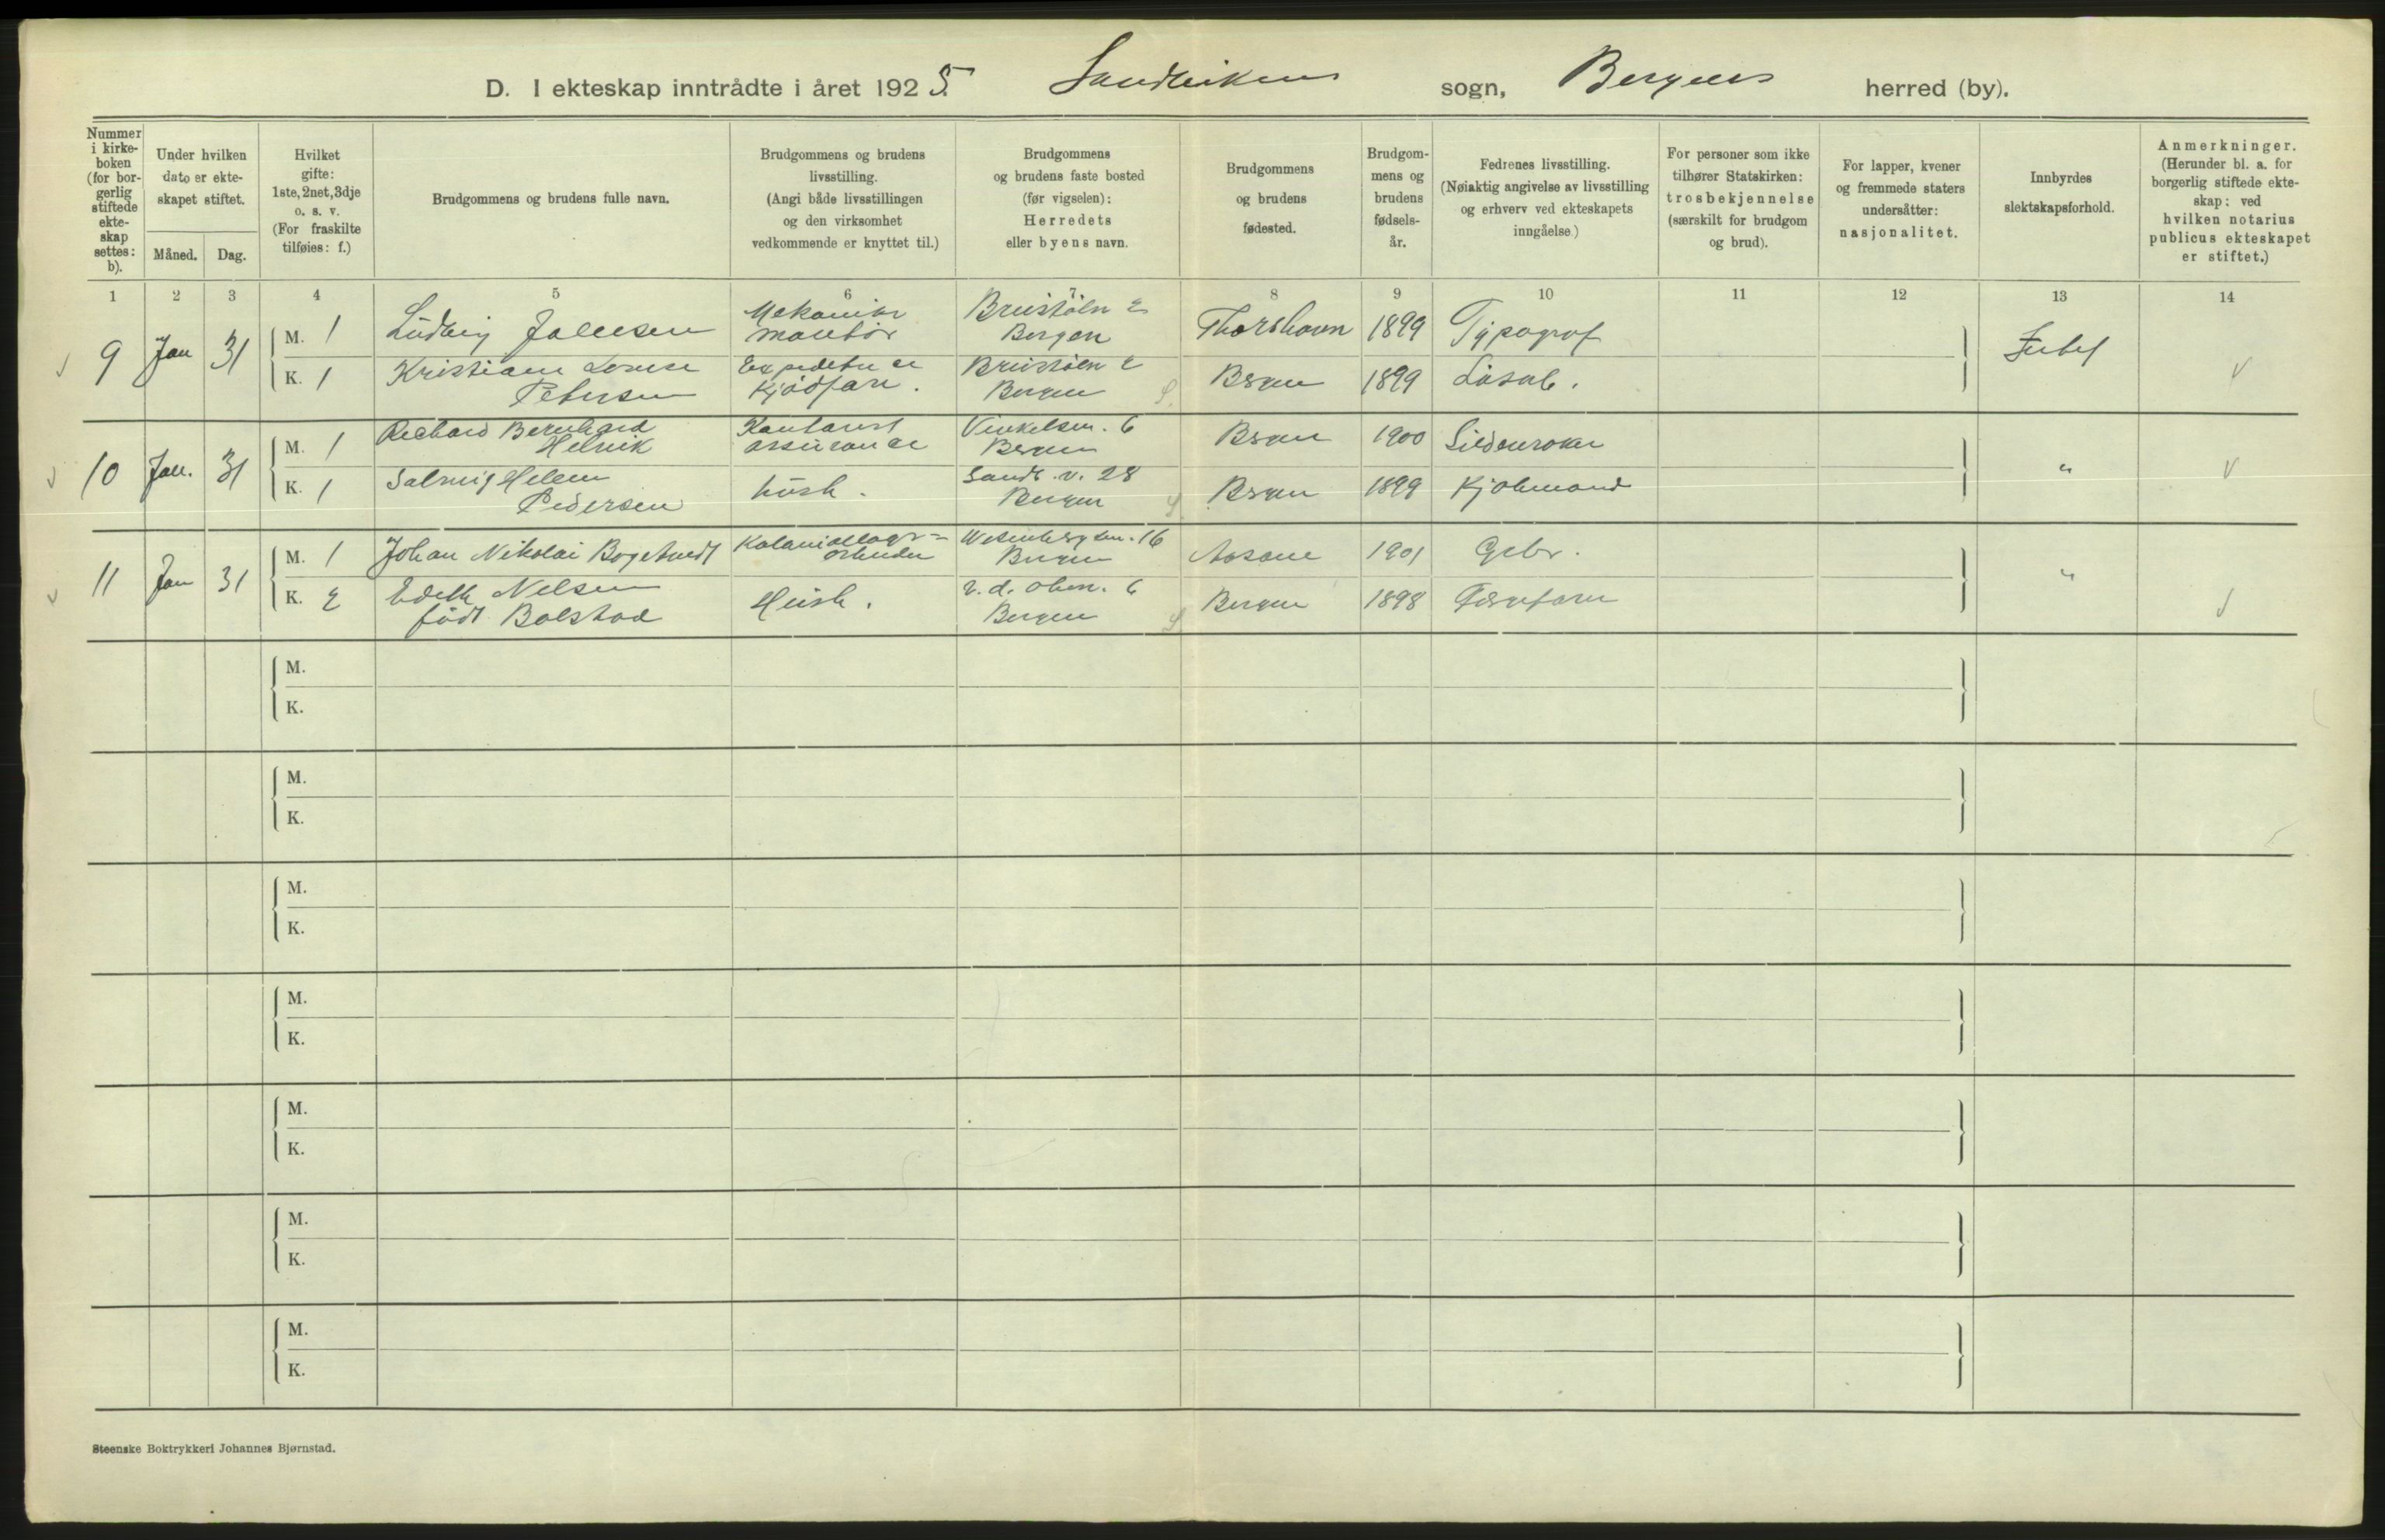 D. I ekteskap inntrådte i året 1925. Sandvikens sogn, Bergens herred (by).
Nummer i kirke-boken (for bor-gerlig stiftede ekte-skap settes: b).
Under hvilken dato er ekte-skapet stiftet.
Måned. Dag.
Hvilket gifte: 1ste, 2net, 3dje o. s. v. (For fraskilte tilføies: f.)
Brudgommens og brudens fulle navn.
Brudgommens og brudens livsstilling. (Angi både livsstillingen og den virksomhet vedkommende er knyttet til.)
Brudgommens og brudens faste bosted (før vigselen): Herredets eller byens navn.
Brudgommens og brudens fødested.
Brudgom-mens og brudens fødsels-år.
Fedrenes livsstilling. (Nøiaktig angivelse av livsstilling og erhverv ved ekteskapets inngåelse)
For personer som ikke tilhører Statskirken: trosbekjennelse (særskilt for brudgom og brud).
For lapper, kvener og fremmede staters undersåtter: nasjonalitet.
Innbyrdes slektskapsforhold.
Anmerkninger. (Herunder bl. a. for borgerlig stiftede ekte-skap: ved hvilken notarius publicus ekteskapet er stiftet.)
1 2 3 4 5 6 7 8 9 10 11 12 13 14
9 Jan 31
M. 1 Ludvig Joensen Mekaniker montør Bergen Thorshavn 1899 Typograf
K. 1 Kristiane Lovise Petersen Kjødfarr. Bergen Bergen 1899 Løsarb.
10 Jan. 31
M. 1 Richard Bernhard Helvik Kontorist assurance Vinkelsm. 6 Bergen Bergen 1900 Sildevraker
K. 1 Solveig Helene Pedersen Hush. Sandv. v. 28 Bergen Bergen 1899 Kjøbmand "
11 Jan 31
M. 1 Johan Nikolai Bogetvedt Koloniallager= arbeider Wesenbergsm. 16 Bergen Aasane 1901 Gbr.
K. 2 Edith Nilsen født Bolstad Hush. 6 Bergen Bergen 1898 "
M.
K.
M.
K.
M.
K.
M.
K.
M.
K.
M.
K.
M.
K.
Steenske Boktrykkeri Johannes Bjørnstad.